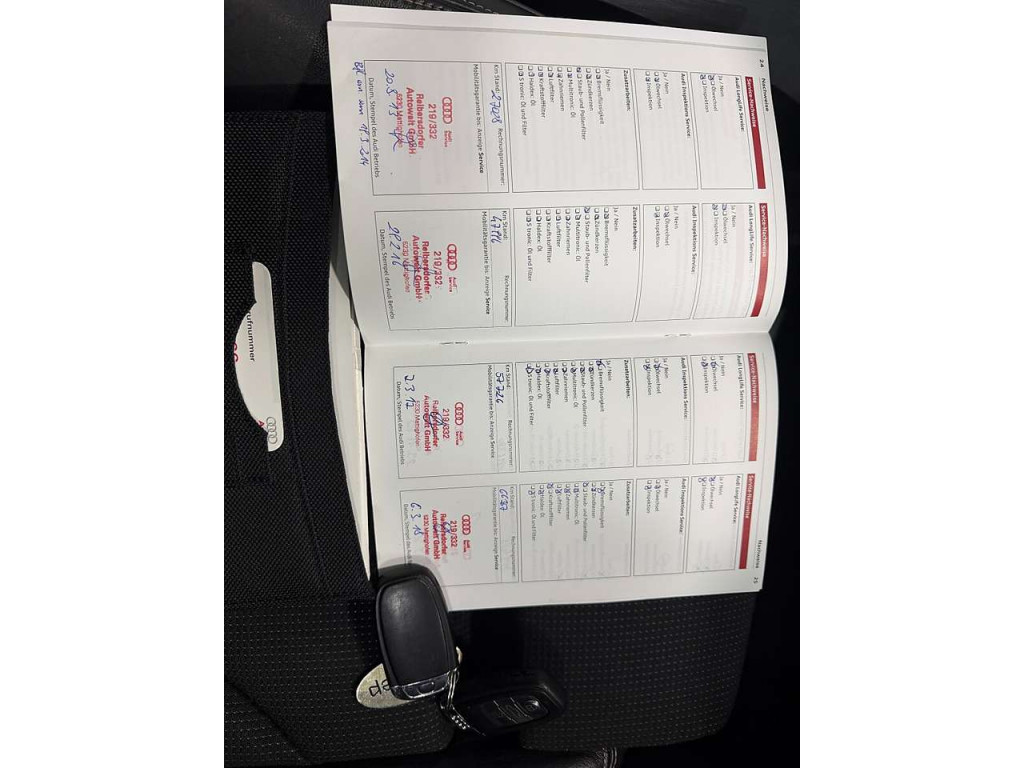 24 Nachweise
Service-Nachweise
Audi LongLife Service:
Ja / Nein
Ölwechsel
Inspektion
Audi Inspektions Service:
Ja / Nein
Ölwechsel
Inspektion
Zusatzarbeiten:
Ja / Nein
Bremsflüssigkeit
Zündkerzen
Staub- und Pollenfilter
Multitronic: Öl
Zahnriemen
Luftfilter
Kraftstofffilter
Haldex: Öl
S tronic: Öl und Filter
Km Stand: 27028 Rechnungsnummer:
Mobilitätsgarantie bis: Anzeige Service
Audi Service
219/332
Reibersdorfer
Autowelt GmbH
5230 Mattighofen
20.3
Datum, Stempel des Audi Betriebs
Service-Nachweise
Audi LongLife Service:
Ja / Nein
Ölwechsel
Inspektion
Audi Inspektions Service:
Ja / Nein
Ölwechsel
Inspektion
Zusatzarbeiten:
Ja / Nein
Bremsflüssigkeit
Zündkerzen
Staub- und Pollenfilter
Multitronic: Öl
Zahnriemen
Luftfilter
Kraftstofffilter
Haldex: Öl
S tronic: Öl und Filter
Km Stand: Rechnungsnummer:
Mobilitätsgarantie bis: Anzeige Service
Audi Service
219/332
Reibersdorfer
Autowelt GmbH
5230 Mattighofen
Datum, Stempel des Audi Betriebs
Service-Nachweise
Audi LongLife Service:
Ja / Nein
Ölwechsel
Inspektion
Audi Inspektions Service:
Ja / Nein
Ölwechsel
Inspektion
Zusatzarbeiten:
Ja / Nein
Bremsflüssigkeit
Zündkerzen
Staub- und Pollenfilter
Multitronic: Öl
Zahnriemen
Luftfilter
Kraftstofffilter
Haldex: Öl
S tronic: Öl und Filter
Km Stand: 57726 Rechnungsnummer:
Mobilitätsgarantie bis: Anzeige Service
Audi Service
219/332
Reibersdorfer
Autowelt GmbH
5230 Mattighofen
2.3 17
Datum, Stempel des Audi Betriebs
Nachweise 25
Service-Nachweise
Audi LongLife Service:
Ja / Nein
Ölwechsel
Inspektion
Audi Inspektions Service:
Ja / Nein
Ölwechsel
Inspektion
Zusatzarbeiten:
Ja / Nein
Bremsflüssigkeit
Zündkerzen
Staub- und Pollenfilter
Multitronic: Öl
Zahnriemen
Luftfilter
Kraftstofffilter
Haldex: Öl
S tronic: Öl und Filter
Km Stand: Rechnungsnummer:
Mobilitätsgarantie bis: Anzeige Service
Audi Service
219/332
Reibersdorfer
Autowelt GmbH
5230 Mattighofen
6.3 18
Datum, Stempel des Audi Betriebs
rufnummer